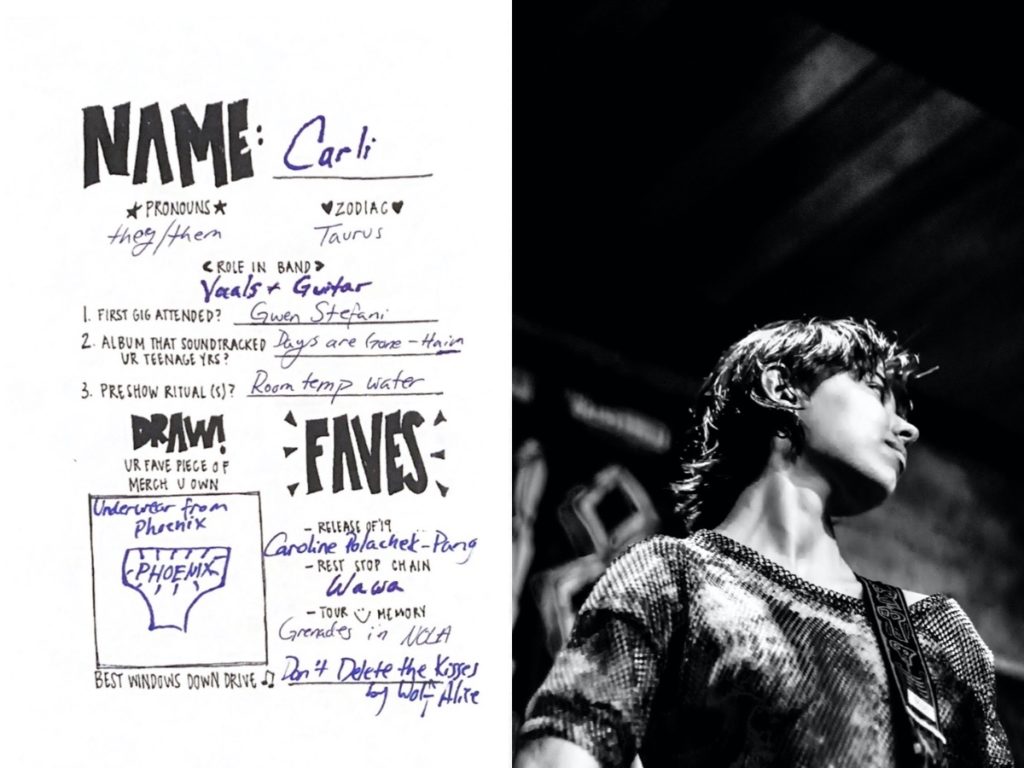 NAME: Carli
★PRONOUNS★ ♥ZODIAC♥
they/them Taurus
<ROLE IN BAND>
Vocals + Guitar
1. FIRST GIG ATTENDED? Gwen Stefani
2. ALBUM THAT SOUNDTRACKED Days are Gone - Haim
UR TEENAGE YRS?
3. PRESHOW RITUAL(S)? Room temp water
DRAW!
UR FAVE PIECE OF
MERCH U OWN
Underwear from
Phoenix
PHOENIX
FAVES
- RELEASE OF '19
Caroline Polachek - Pang
- REST STOP CHAIN
Wawa
- TOUR MEMORY
Grenades in NOLA
BEST WINDOWS DOWN DRIVE ♫ Don't Delete the Kisses
by Wolf Alice